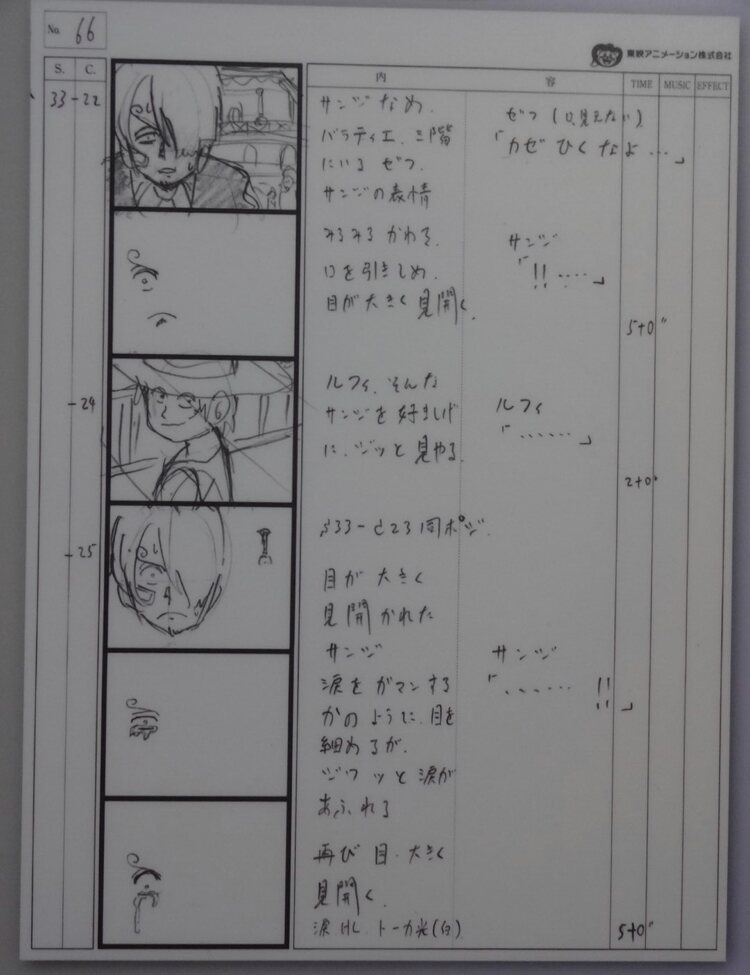 No. 66
東映アニメーション株式会社
S. C. 内 容 TIME MUSIC EFFECT
33-22
サンジなめ、
バラティエ、三階
にいるゼフ。
サンジの表情
ゼフ(口、見えない)
「カゼひくなよ…」
みるみるかわる。
口を引きしめ、
目が大きく見開く。
サンジ
「!!……」
5+0"
-24
ルフィ、そんな
サンジを好ましげ
に、ジッと見やる。
ルフィ
「……」
2+0"
-25
S33-C23同ポジ。
目が大きく
見開かれた
サンジ
涙をガマンする
かのように、目を
細めるが、
ジワッと涙が
あふれる
サンジ
「…… !!」
再び目、大きく
見開く。
涙HL、トーカ光(白)
5+0"